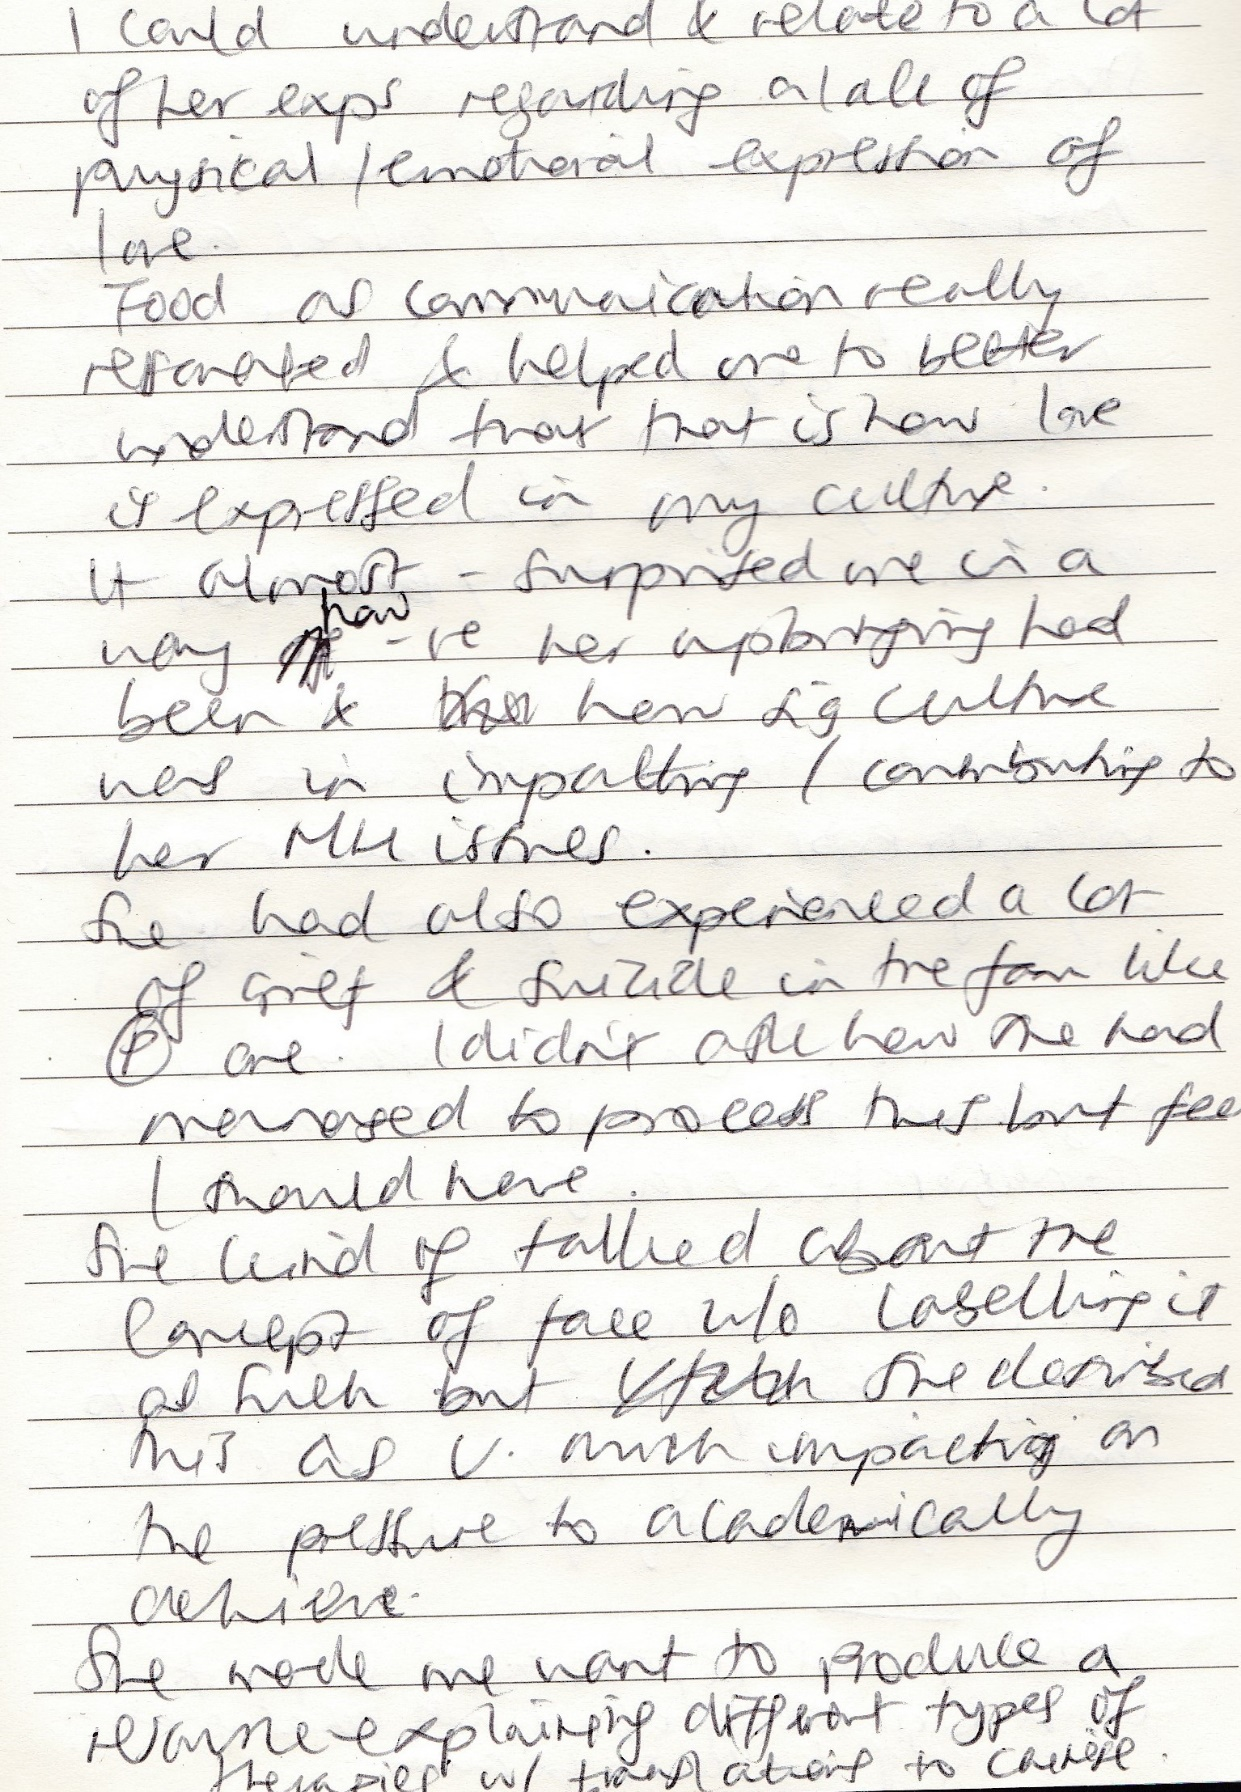 I could understand & relate to a lot
of her exps regarding a lack of
physical / emotional expression of
love.
Food as communication really
resonated & helped me to better
understand that that is how love
is expressed in my culture.
It almost - surprised me in a
way how -ve her upbringing had
been & how sig culture
was in impacting / contributing to
her MH issues.
She had also experienced a lot
of grief & suicide in the fam like
P one. I didn't ask how she had
managed to process this but feel
I should have.
She kind of talked about the
concept of face w/o labelling it
as such but she described
this as v. much impacting on
the pressure to academically
achieve.
She made me want to produce a
resource explaining different types of
therapies w/ translations to Chinese.